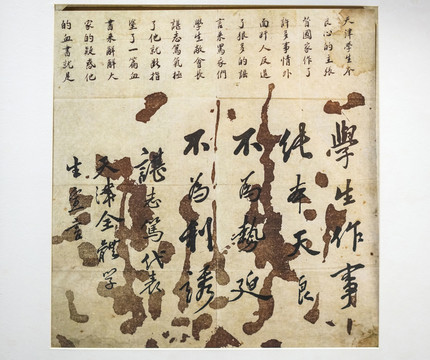 天津學生本
良心的主張
替國家作了
許多事情外
面奸人反造
了很多的謠
言來罵我們
學生敝會長
諶志篤氣極
了他就斷指
了一篇血
書來解釋大
家的疑惑他
的血書就是
學生作事
純本天良
不為勢廹
不為利誘
諶志篤代表
天津全體學
生宣言